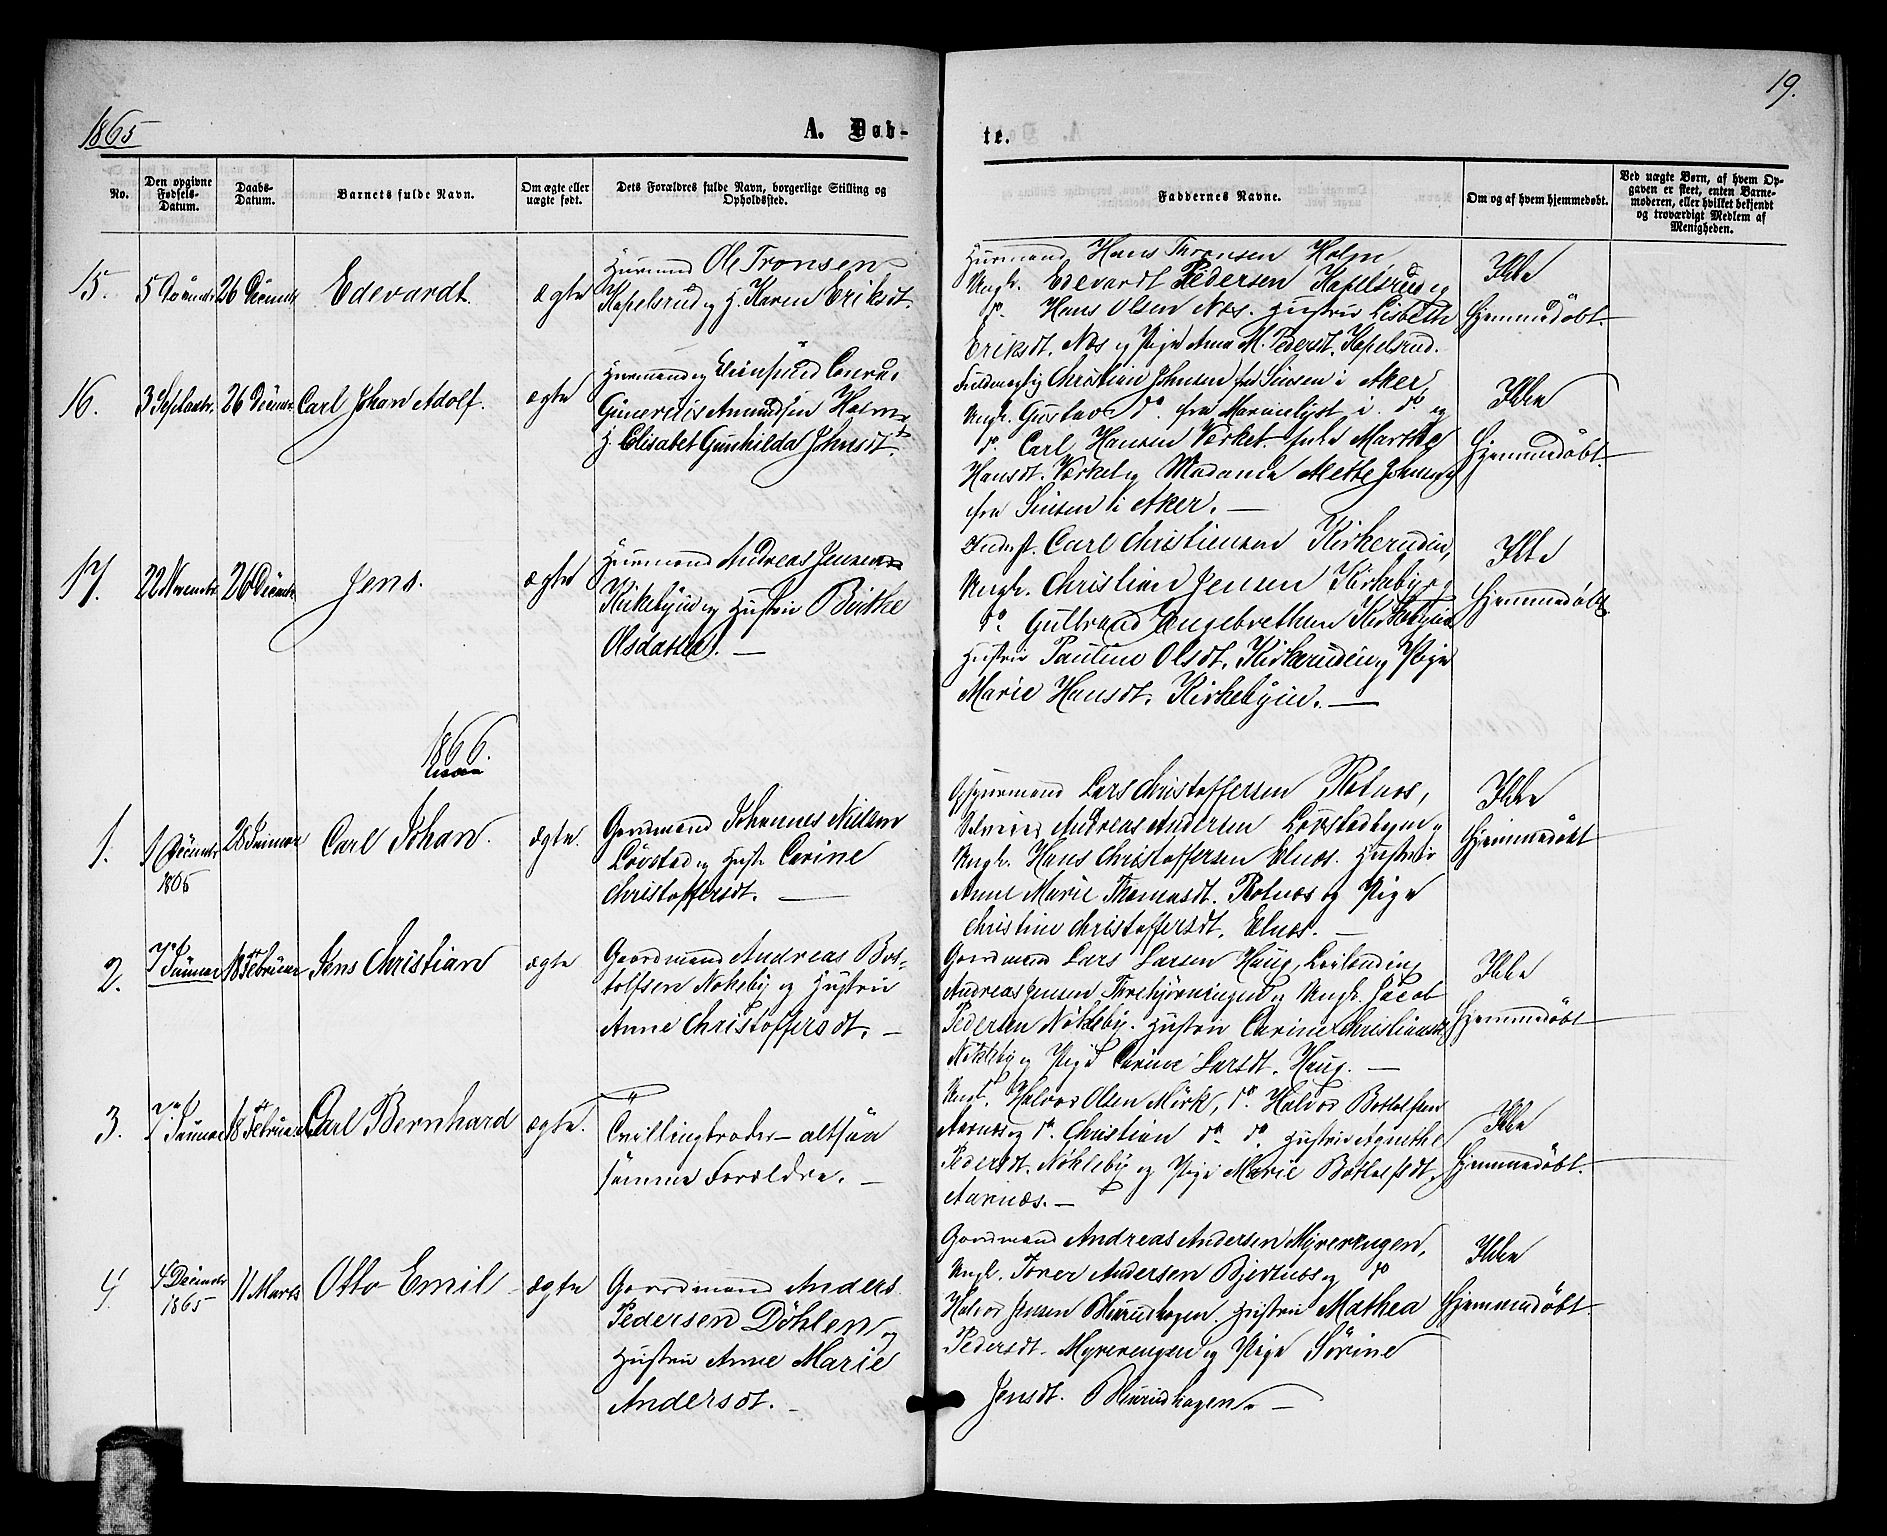 1865
A. Døb-
te.
19.
No.
Den opgivne Fødsels-Datum.
Daabs-Datum.
Barnets fulde Navn.
Om ægte eller uægte født.
Dets Forældres fulde Navn, borgerlige Stilling og Opholdssted.
Faddernes Navne.
Om og af hvem hjemmedøbt.
Ved uægte Børn, af hvem Opgaven er skeet, enten Barnemoderen, eller hvilket bekjendt og troværdigt Medlem af Menigheden.
15.
26
Edevardt
ægte
Huusmand Ole Tronsen
Kapelsrud og H. Karen Eriksdt.
Huusmand Hans Thronsen Holm,
Ungk. Edevardt Pedersen Kapelsrud og
do. Hans Olsen Næs. Hustru Lisbeth
Eriksdt. Næs og Pige Anne M. Pedersdt. Kapelsrud.
Ikke
Hjemmedøbt.
16.
26
Carl Johan Adolf.
ægte
Amundsen Holm
H. Elisabet Gunhilda Johnsdt.
Christian Johnsen fra Sinsen i Aker,
Ungk. Gustav do. fra Marienlyst i do og
do. Carl Hansen Værket. Marthe
Hansdt. Værket og Madame Mette Johnsen
fra Sinsen i Aker.
Ikke
Hjemmedøbt.
17.
22
26
Jens.
ægte
Huusmand Andreas Jensen
Kirkebyeie og Hustru Birthe
Olsdatter.
Inderst. Carl Christiensen Kirkerudeie,
Ungk. Christian Jensen Kirkeby og
do. Gulbrand Engebrethsen Kirkebyeie
Hustru Pauline Olsdt. Kirkerudeie og Pige
Marie Hansdt. Kirkebyeie.
Ikke
Hjemmedøbt.
1866.
1.
1 Decembr 1865
28 Januar
Carl Johan.
ægte.
Gaardmand Johannes Nielsen
Løvstad og Hustr. Carine
Christoffersdt.
Lars Christoffersen Rotnæs,
Selveier Andreas Andersen
Ungk. Hans Christoffersen Elnæs. Hustru
Anne Marie Thomasdt. Rotnæs og Pige
Christine Christoffersdt. Elnæs.
Ikke
Hjemmedøbt
2.
7 Januar
18 Februar
Jens Christian
ægte
Gaardmand Andreas Bot-
tolfsen Nøkleby og Hustru
Anne Christoffersdt.
Gaardmand Lars Larsen Haug,
Andreas Jensen og Ungk. Jacob
Pedersen Nøkleby. Hustru Carine Christiansdt.
Nøkleby og Pige Carine Larsdt. Haug.
Ikke
Hjemmedøbt
3.
7 Januar
18 Februar
Carl Bernhard
ægte.
Tvillingbroder altsaa
samme Forældre.
Ungk. Halvor Olsen Mørk, do. Halvor Bottolfsen
Aarnæs og do. Christian do. do Hustru Agnethe
Pedersdt. Nøkleby og Pige Marie Bottolfsdt.
Aarnæs.
Ikke
Hjemmedøbt.
4.
4 Decembr 1865
11 Marts
Otto Emil
ægte
Gaardmand Anders
Pedersen Døhlen og
Hustru Anne Marie
Andersdt.
Gaardmand Andreas Andersen Myrerengen,
Ungk. Iver Andersen Bjertnæs og do
Halvor Jensen Hustru Mathea
Pedersdt. Myrerengen og Pige Sørine
Jensdt.
Ikke
Hjemmedøbt.